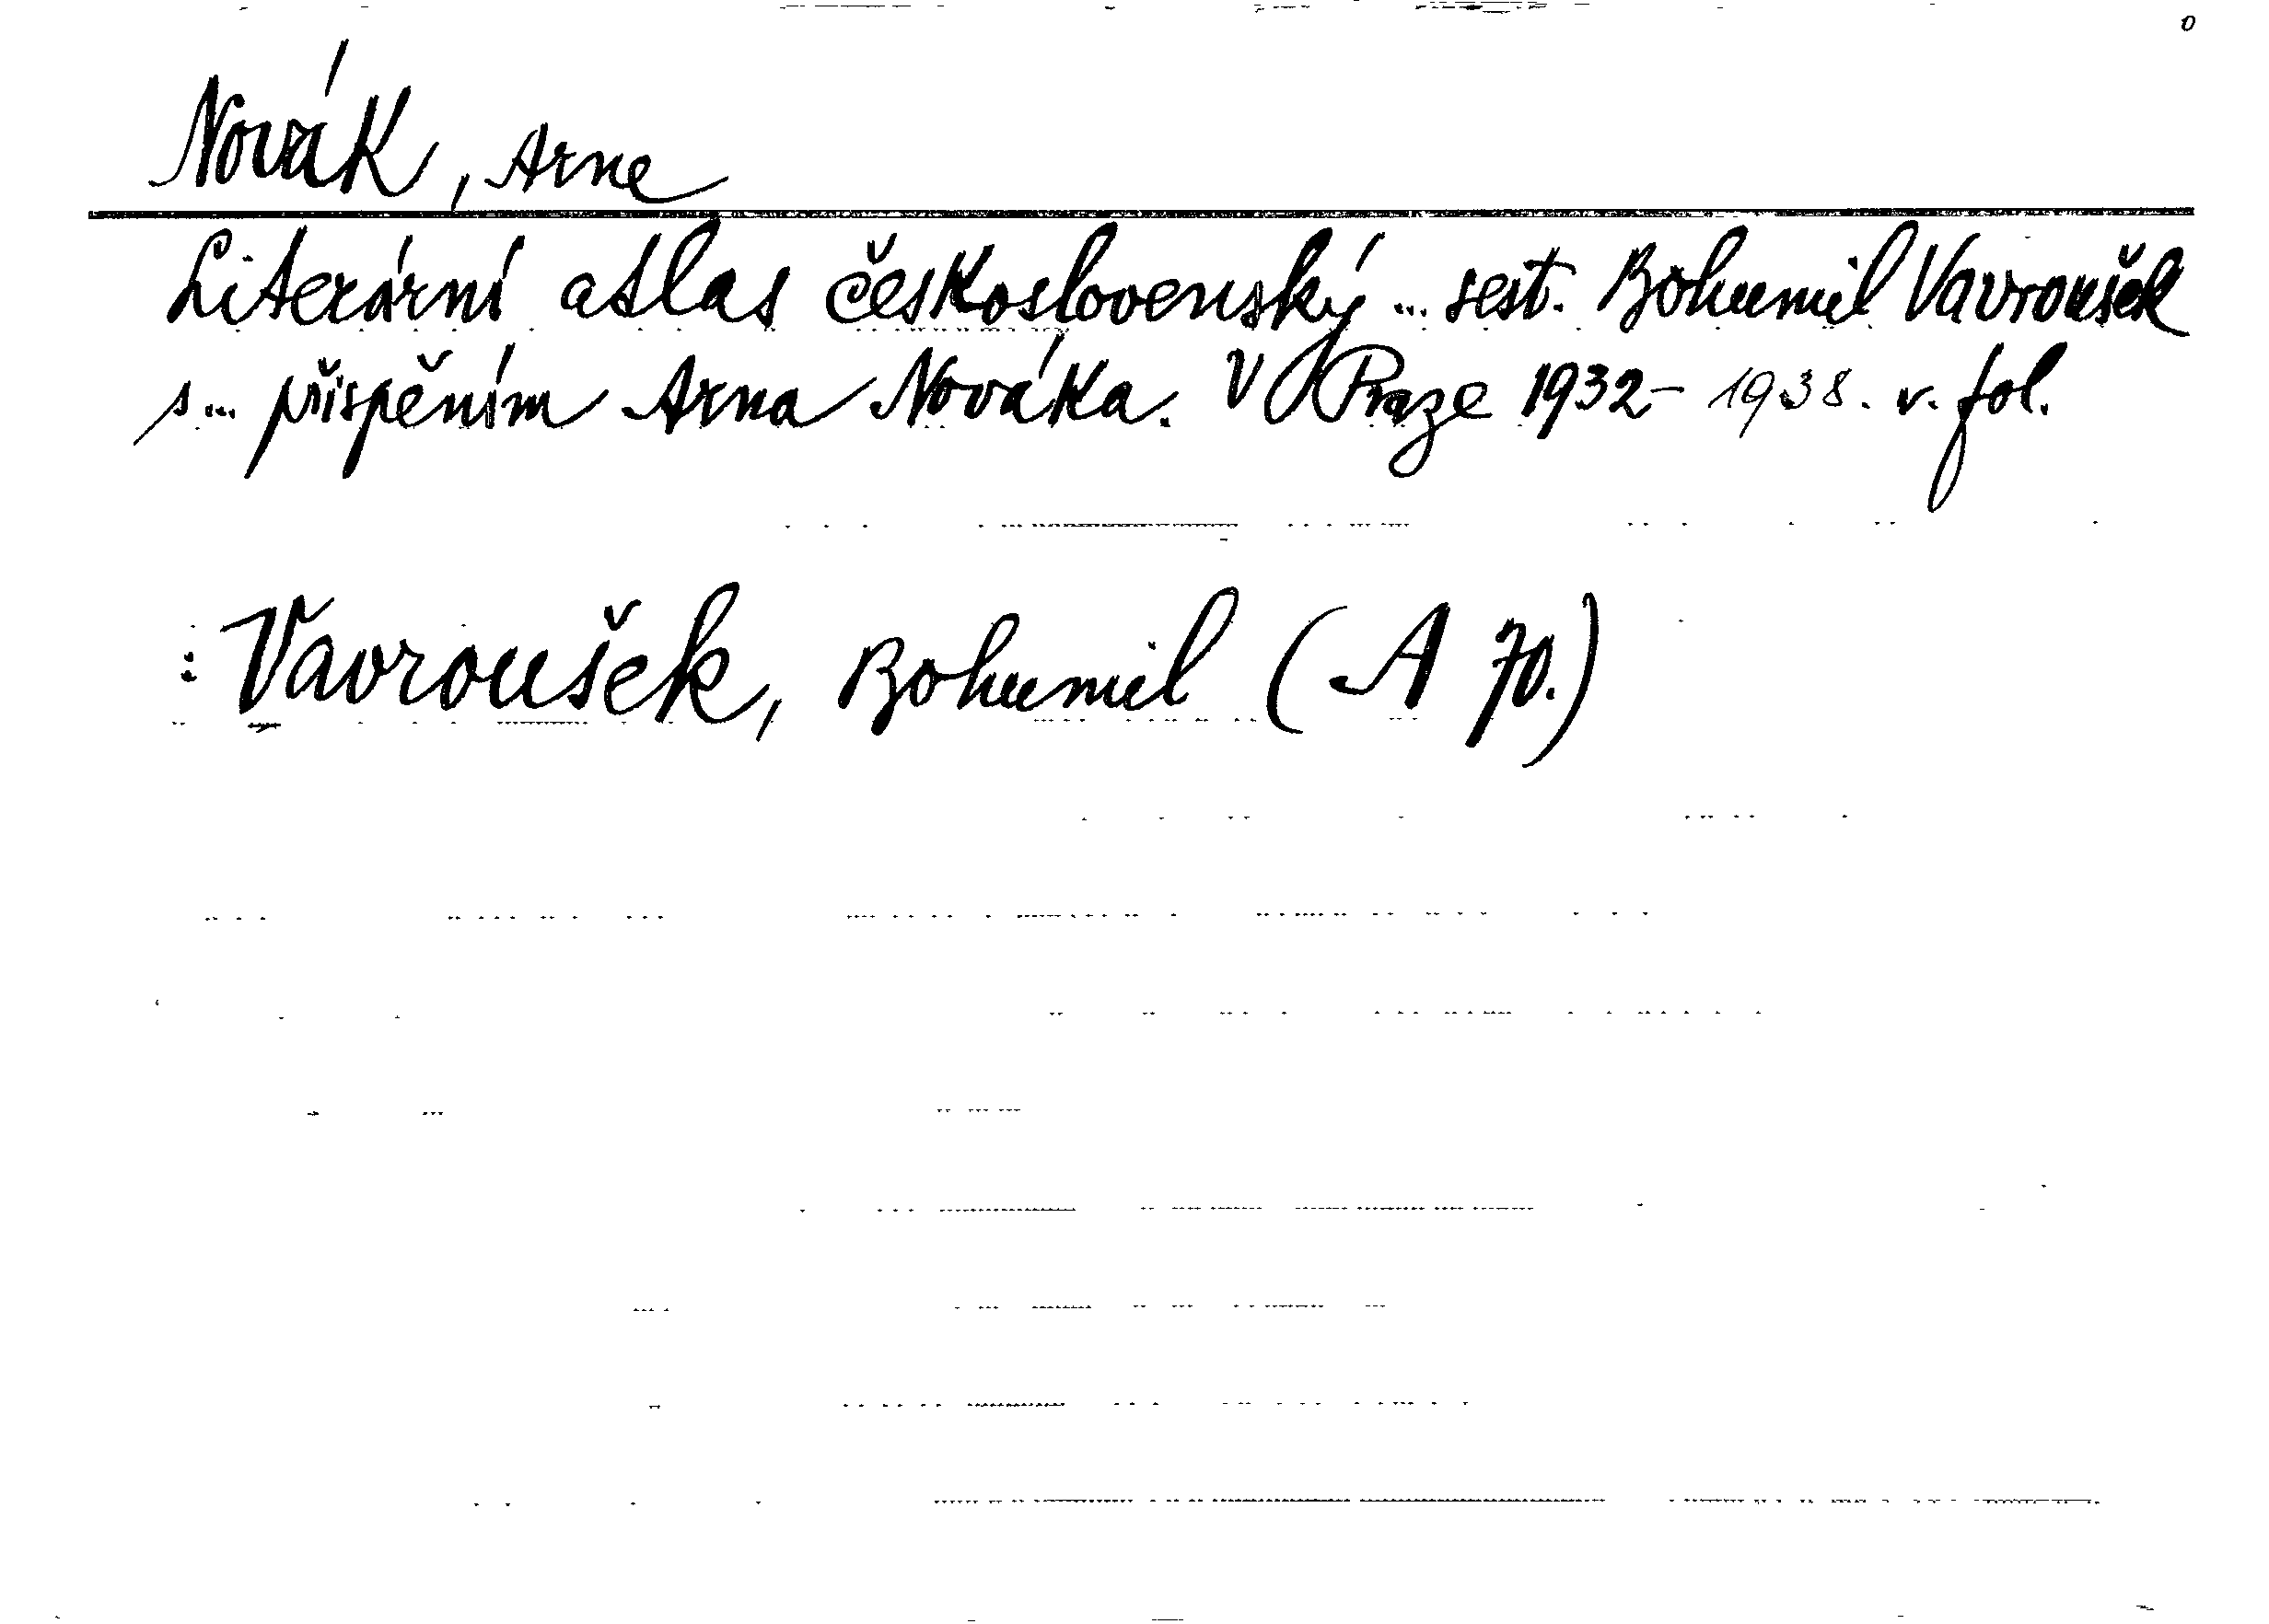 Novák, Arne
Literární atlas československý ... sest. Bohumil Vavroušek
s ... přispěním Arna Nováka. V Praze 1932- 1938. v. fol.
: Vavroušek, Bohumil (A 70.)